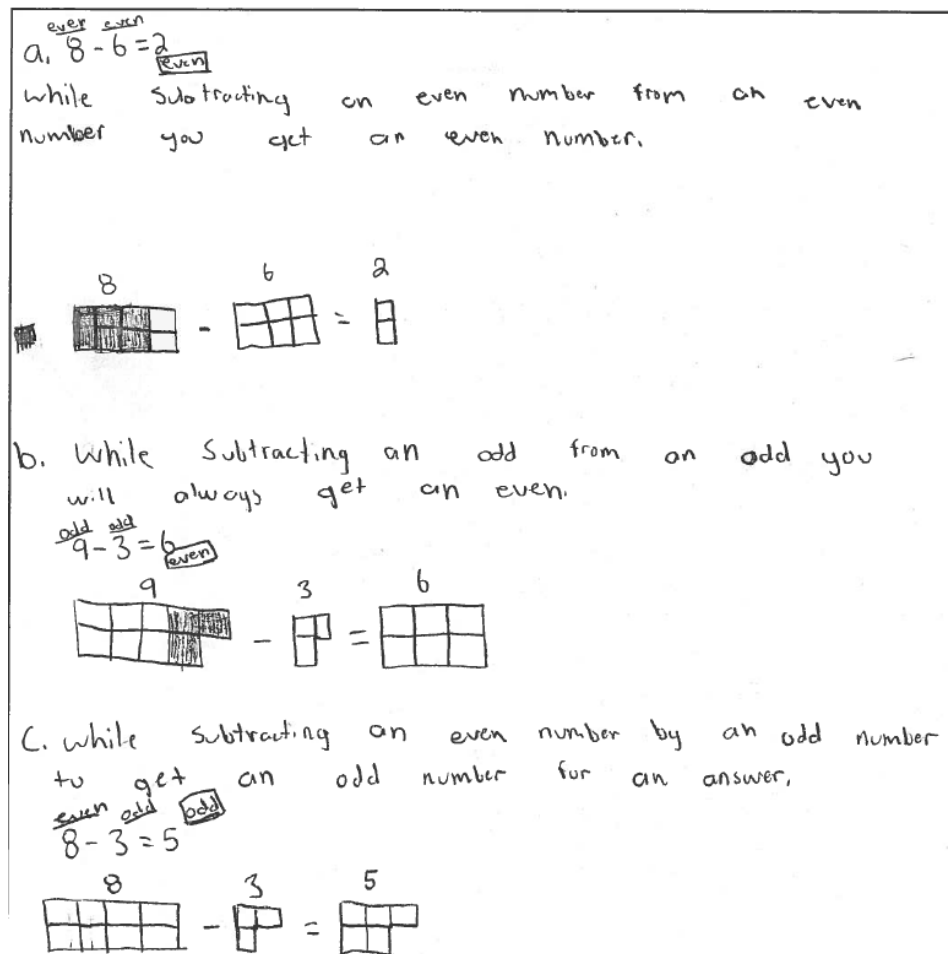 even even
a. 8 - 6 = 2
even
while Subtracting an even number from an even
number you get an even number.
8 6 2
- =
b. While Subtracting an odd from an odd you
will always get an even.
odd odd
9 - 3 = 6
even
9 3 6
- =
C. while subtracting an even number by an odd number
to get an odd number for an answer.
even odd odd
8 - 3 = 5
8 3 5
- =